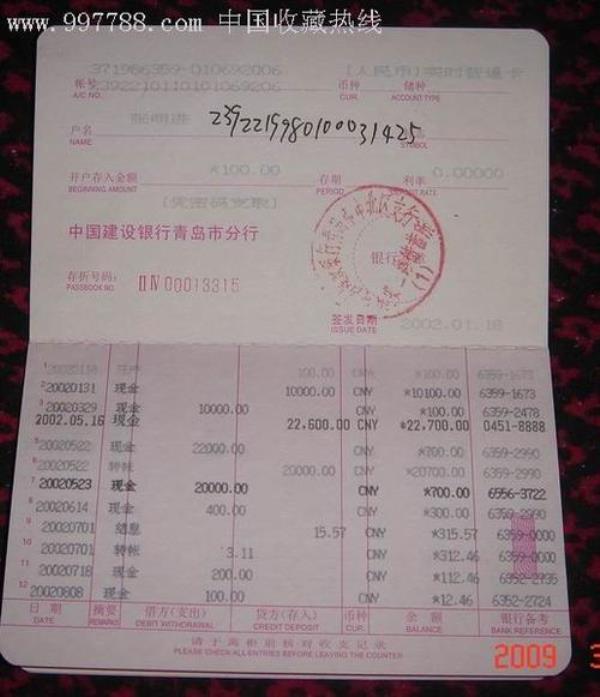 www.997788.com 中国收藏热线
371986359-010692006 [人民币]实时普通卡
帐号 3922101101010692​06 币种 储种
A/C NO. CUR. ACCOUNT TYPE
户名 2392219980100031425
NAME SYMBOL
开户存入金额 *100.00 存期 利率 0.00000
BEGINNING AMOUNT PERIOD RATE
[凭密码支取]
中国建设银行青岛市分行 银行签章
存折号码: IIIV 00013315
PASSBOOK NO.
签发日期 2002.01.18
ISSUE DATE
1 20020118 开户 100.00 CNY *100.00 6359-1673
2 20020131 现金 10000.00 CNY *10100.00 6359-1673
3 20020329 现金 10000.00 CNY *100.00 6359-2478
2002.05.16 现金 22,600.00 CNY *22,700.00 0451-8888
5 20020522 现金 22000.00 CNY *700.00 6359-2990
6 20020522 转帐 20000.00 CNY *20700.00 6359-2990
7 20020523 现金 20000.00 CNY *700.00 6556-3722
8 20020614 现金 400.00 CNY *300.00 6359-2990
9 20020701 结息 15.57 CNY *315.57 6359-0000
10 20020701 转帐 3.11 CNY *312.46 6359-0000
11 20020718 现金 200.00 CNY *112.46 6352-2735
12 20020808 现金 100.00 CNY *12.46 6352-2724
日期 摘要 借方(支出) 贷方(存入) 币种 余额 银行备考
DATE REMARKS DEBIT WITHDRAWAL CREDIT DEPOSIT CUR. BALANCE BANK REFERENCE
请于离柜前核对收支记录
PLEASE CHECK ALL ENTRIES BEFORE LEAVING THE COUNTER
2009 3